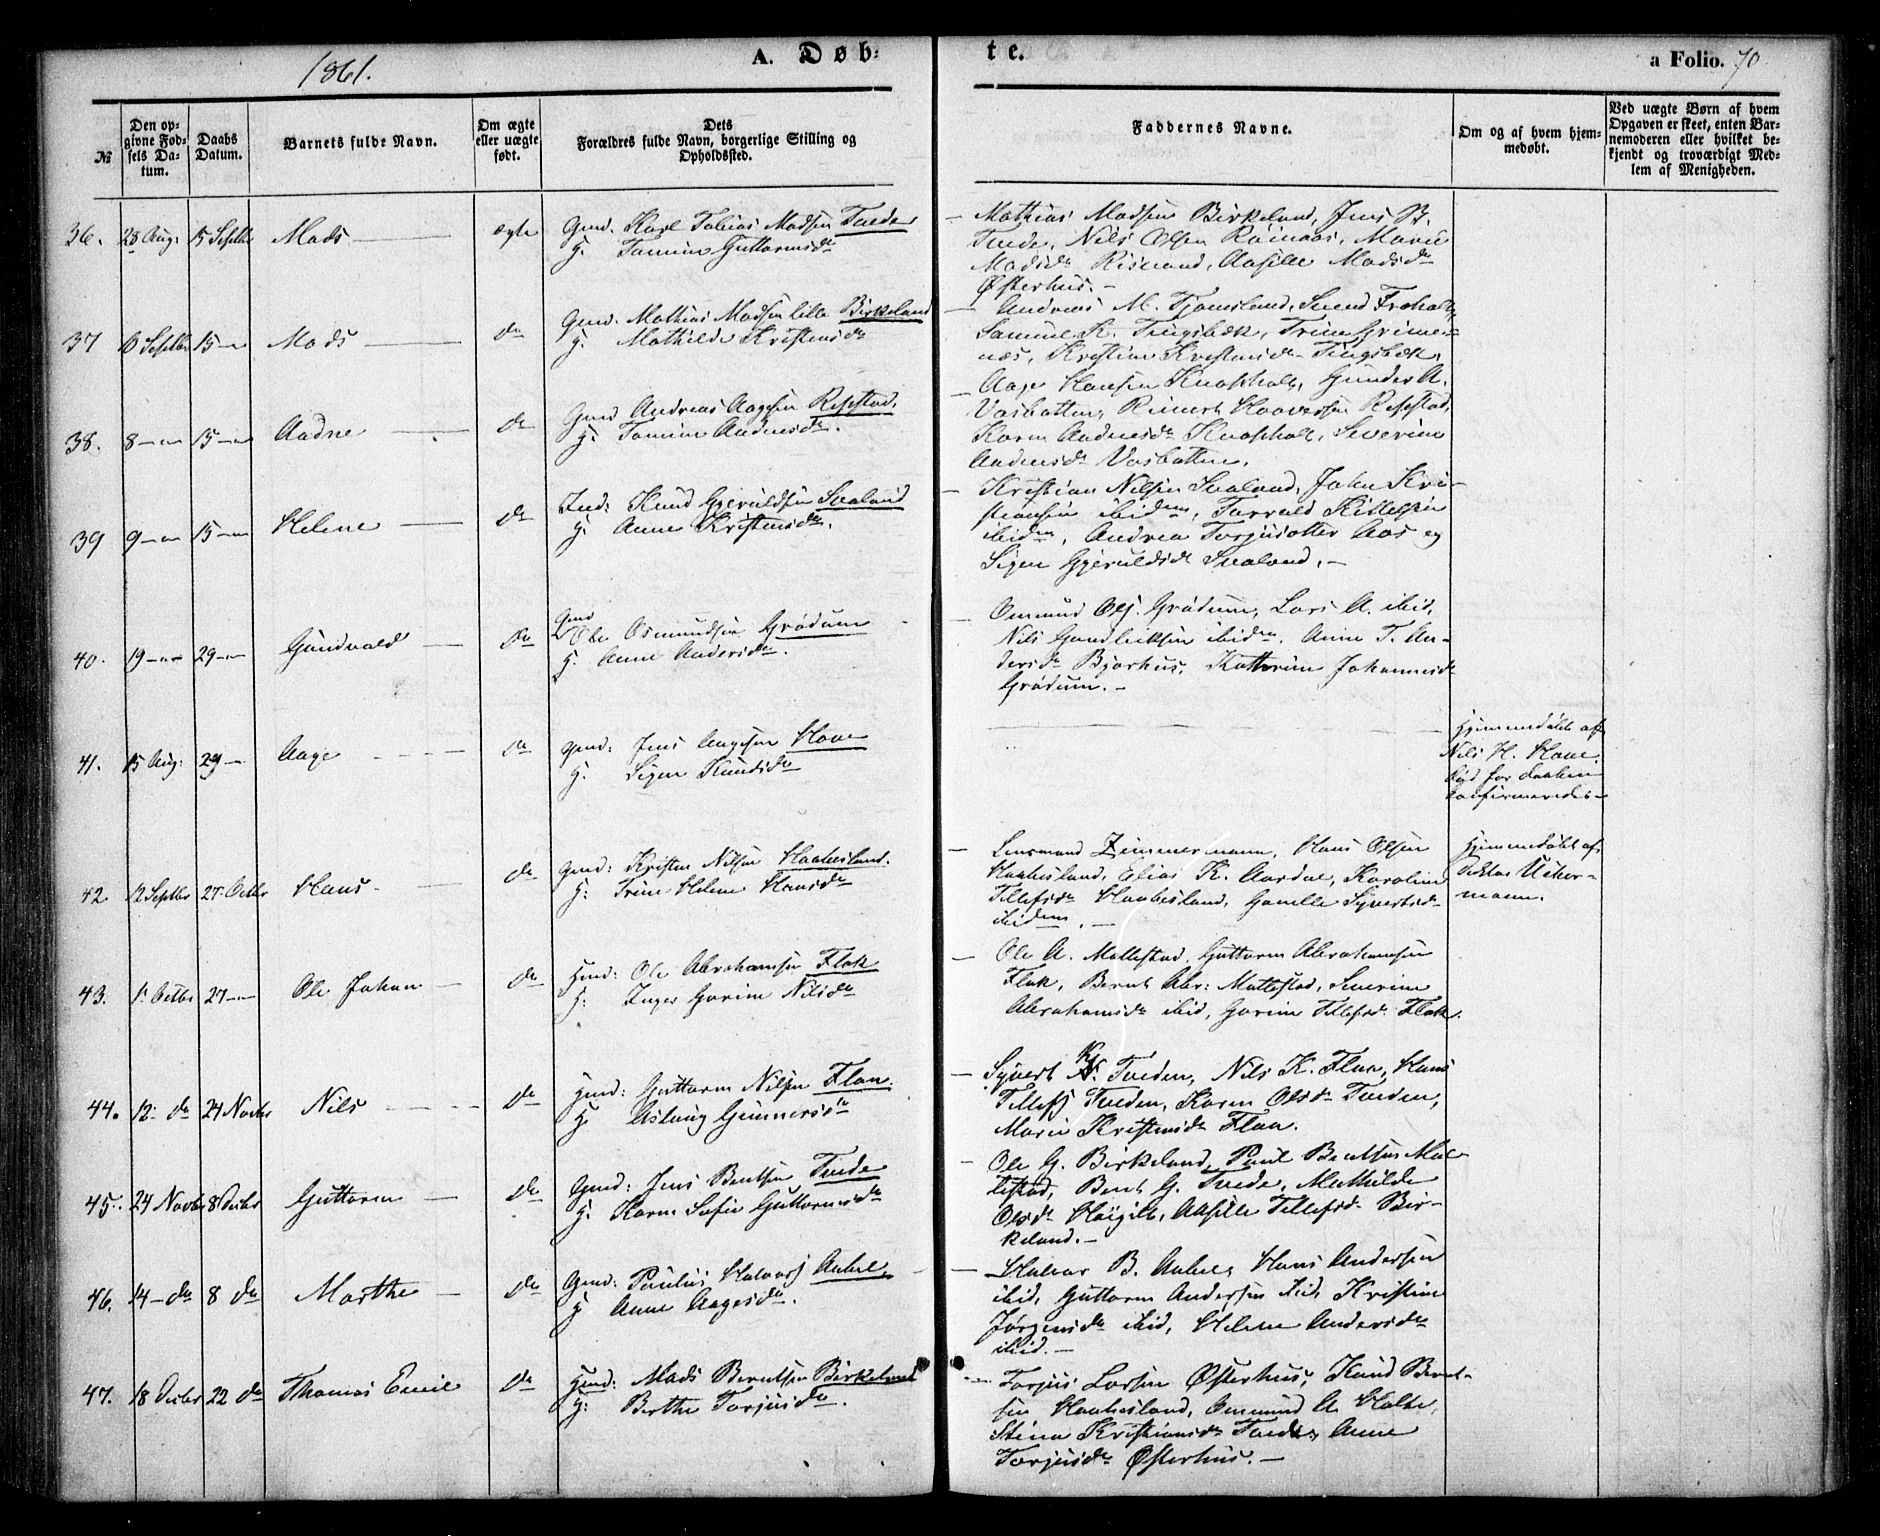 1861.
A. Døb-
te.
a Folio. 70
№
Den op-
givne Fød-
sels Da-
tum.
Daabs
Datum.
Barnets fulde Navn.
Om ægte
eller uægte
født.
Dets
Forældres fulde Navn, borgerlige Stilling og
Opholdssted.
Faddernes Navne.
Om og af hvem hjem-
medøbt.
Ved uægte Børn af hvem
Opgaven er skeet, enten Bar-
nemoderen eller hvilket be-
kjendt og troværdigt Med-
lem af Menigheden.
36. 28 Aug: 15 Septbr Mads ægte Gmd. Karl Tobias Madsen Tvede
H. Tomine Guttormsdr
Mathias Madsen Birkeland, Jens B.
Tvede, Nils Olsen Røinaas, Marie
Madsdr Risland, Aasille Madsdr
Østerhus.
37 10 Septbr 15 - Mads do Gmd. Mathias Madsen lille Birkeland
H. Mathilde Kristensdr
Andreas M. Tjomsland, Svend Froholt,
Samuel K. Tingsbæk, Trine Grime-
næs, Kristine Kristensdr Tingsbæk.
38. 8 - 15 - Aadne do Gmd Andreas Aagesen Repstad.
H. Tomine Aadnesdr.
Aage Hansen Knapholt, Gunder A.
Vasbotten, Reinert Haaversen Repstad,
Karen Aadnesdr Knapholt, Severine
Aadnesdr Vasbotten.
39 9 - 15 - Helene do Ind: Knud Gjeruldsen Svaland
H. Anne Kristensdr
Kristian Nilsen Svaland, John Kri-
stiansen ibidem, Torvald Kittelsen
ibidem, Andrea Torjusdotter Aas og
Sigen Gjeruldsdr Svaland.
40. 19 - 29 - Gundvald do Gmd
Ole Osmundsen Grødum
H. Anne Andersdr.
Omund Olsj. Grødum, Lars A. ibid,
Nils Gundleiksen ibidem, Anne T. An-
dersdr Bjorhus, Kathrine Johannesdr
Grødum.
41. 15 Aug: 29 - Aage do Gmd: Jens Aagesen Hove
H. Sigen Knudsdr
Hjemmedøbt af
Nils H. Hove.
Død før Daaben
konfirmeredes
42 12 Septbr 27 Octbr Hans do Gmd: Kristen Nilsen Haabesland.
H. Trine Helene Hansdr
Lensmand Zimmermann, Hans Olsen
Haabesland, Elias K. Aardal, Karoline
Tellefsdr Haabesland, Gunille Syvertsdr
ibidem.
Hjemmedøbt af
Doktor Ucher-
mann.
43. 1 Octbr 27 - Ole Johan do Hmd: Ole Abrahamsen Flak
H. Inger Gurine Nilsdr
Ole A. Mollestad, Guttorm Abrahamsen
Flak, Bernt Abr: Mollestad, Severine
Abrahamsdr ibid, Gurine Tellefsdr Flak.
44. 12 do 24 Novbr Nils do Hmd: Guttorm Nilsen Flaa.
H. Aslaug Gunnersdr
Syvert N. Tveden, Nils K. Flaa, Hans
Tellefsj Tveden, Karen Olsdr Tveden,
Marie Kristensdr Flaa.
45. 24 Novbr 8 Decbr Guttorm do Gmd: Jens Bentsen Tvede
H. Karen Sofie Guttormsdr
Ole G. Birkeland, Paul Bentsen Mol-
lestad, Bent G. Tvede, Mathilde
Olsdr Høigilt, Aasille Tellefsdr Bir-
keland.
46. 14 - do 8 do Marthe do Gmd: Paulus Halvorsj Aabel
H. Anne Aagesdr.
Halvor B. Aabel, Hans Andersen
ibid, Guttorm Andersen ibid, Kristine
Jørgensdr ibid, Helene Andersdr
ibid.
47. 18 Decbr 22 do Thomas Emil do Hmd: Mads Berntsen Birkeland
H. Berthe Torjusdr.
Torjus Larsen Østerhus, Knud Bernt-
sen Haabesland, Omund A. Holte,
Stina Kristiansdr Tvede, Anne
Torjusdr Østerhus.